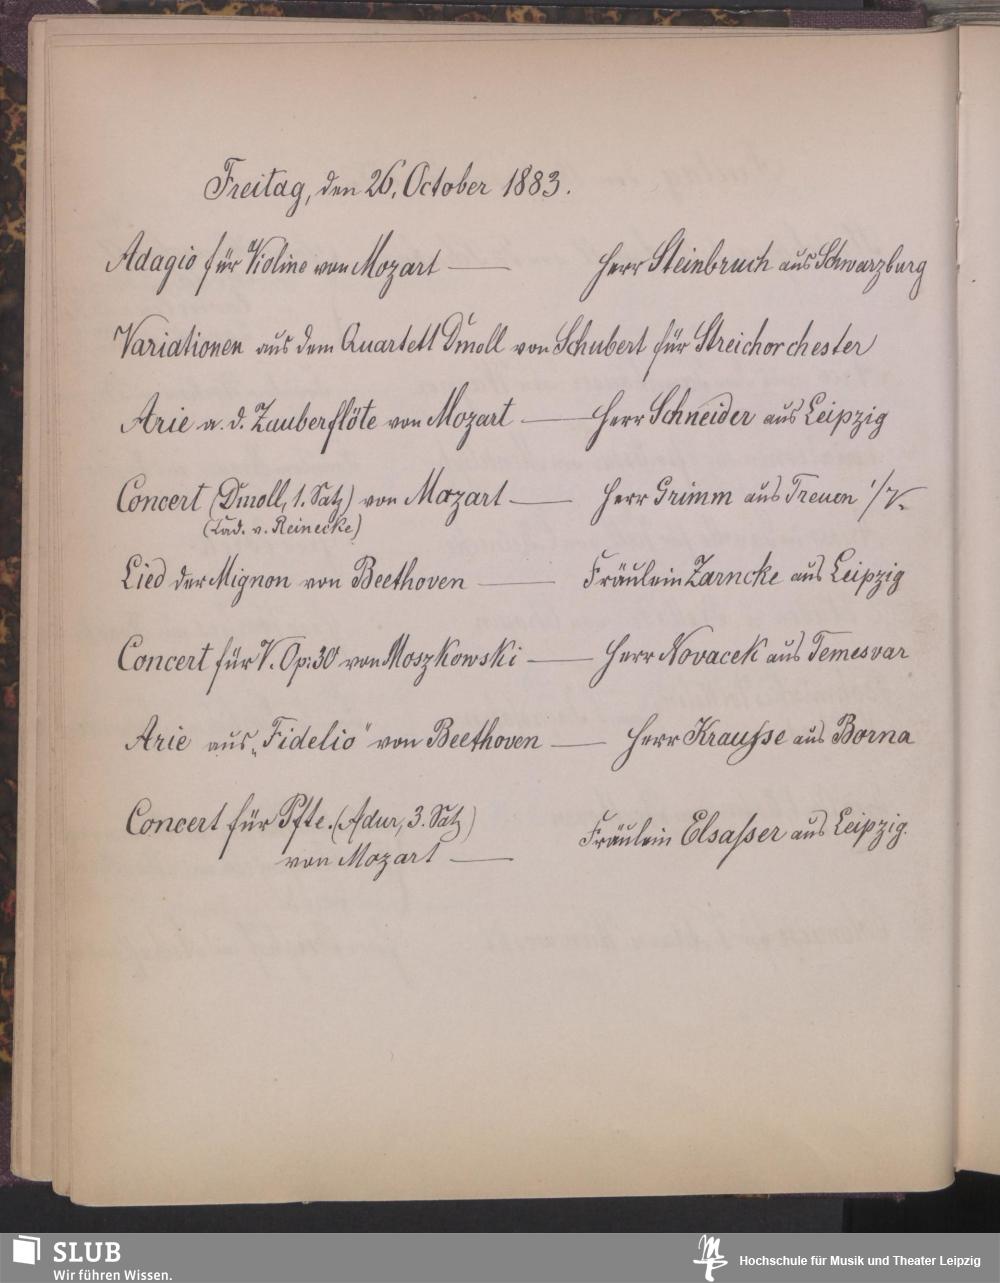 Freitag, den 26. October 1883.
Adagio für Violine von Mozart — Herr Steinbruch aus Schwarzburg
Variationen aus dem Quartett Dmoll von Schubert für Streichorchester
Arie a. d. Zauberflöte von Mozart — Herr Schneider aus Leipzig
Concert (Dmoll, 1. Satz) von Mozart — Herr Grimm aus Treuen i/V.
(Cad. v. Reinecke)
Lied der Mignon von Beethoven — Fräulein Zarncke aus Leipzig
Concert für V. Op: 30 von Moszkowski — Herr Novacek aus Temesvar
Arie aus „Fidelio" von Beethoven — Herr Krauße aus Borna
Concert für Pfte. (Adur, 3. Satz)
von Mozart — Fräulein Elsaßer aus Leipzig.
SLUB
Wir führen Wissen.
Hochschule für Musik und Theater Leipzig